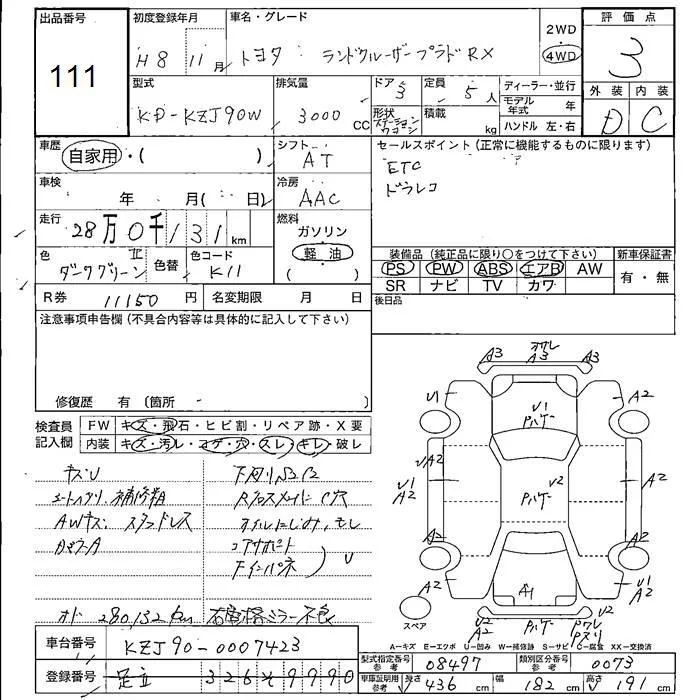 出品番号
111
初度登録年月
H8 11月
車名・グレード
トヨタ ランドクルーザープラドRX
2WD
4WD
評価点
3
外装 内装
D C
型式
KD-KZJ90W
排気量
3000 CC
ドア
3
定員
5人
形状
ステーションワゴン
積載
kg
ディーラー・並行
モデル年式 年
ハンドル 左・右
車歴
自家用・( )
シフト
AT
セールスポイント(正常に機能するものに限ります)
ETC
ドラレコ
車検
年 月( 日)
冷房
AAC
走行
28万0千131km
燃料
ガソリン
軽油
( )
色
ダークグリーンII
色替
色コード
K11
装備品(純正品に限り○をつけて下さい)
PS PW ABS エアB AW
SR ナビ TV カワ
新車保証書
有・無
R券 11150円
名変期限 月 日
後日品
注意事項申告欄(不具合内容等は具体的に記入して下さい)
修復歴 有(箇所 )
検査員記入欄
FW キズ・飛石・ヒビ割・リペア跡・X要
内装 キズ・汚レ・コゲ・穴・スレ・キレ・破レ
キズU
補修粗
AWキズ スタッドレス
下廻りS2C2
オイルにじみ、もし
コアサポート
U
オド 280,132km
右電格ミラー不良
A3 A3 A3
U1 A2
U1
Pハゲ
UA2
U1 A2
U2
Pハゲ
A2
A2 U1 A2
A1
U2 A2
Pハゲ
U2
Pワレ
Pスリ
スペア
A−キズ E−エクボ U−凹み W−補修跡 S−サビ C−腐食 XX−交換済
車台番号 KZJ90-0007423
登録番号 足立 326 そ 9990
型式指定番号参考 08497
類別区分番号参考 0073
車庫証明用参考 長さ 436cm 幅 182cm 高さ 191cm